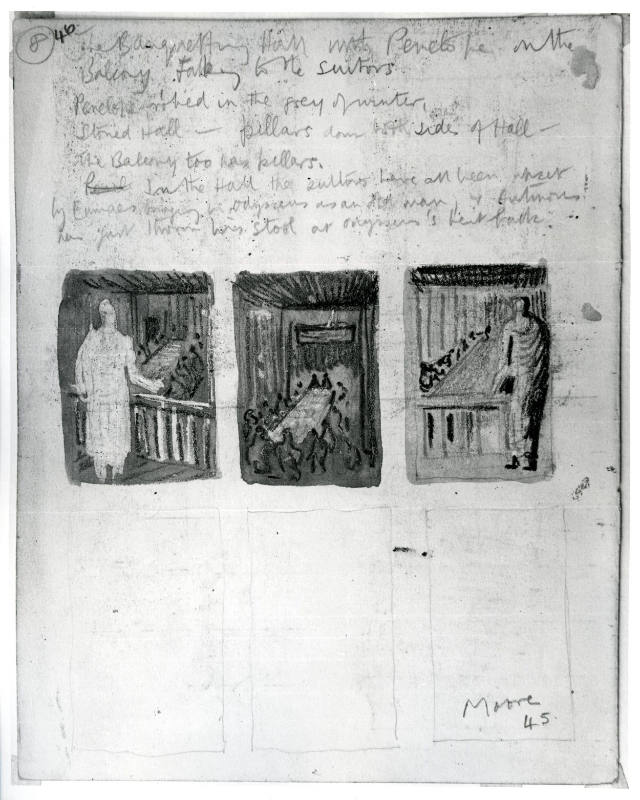 8
46
The Banquetting Hall with Penelope on the
Balcony talking to the suitors
Penelope robed in the grey of winter,
Stoned Hall — pillars down both sides of Hall —
The Balcony too has pillars.
In the Hall the suitors have all been upset
by Eumaeus bringing in Odysseus as an old man, & Antinous
has just thrown his stool at Odysseus's bent back
Moore
45